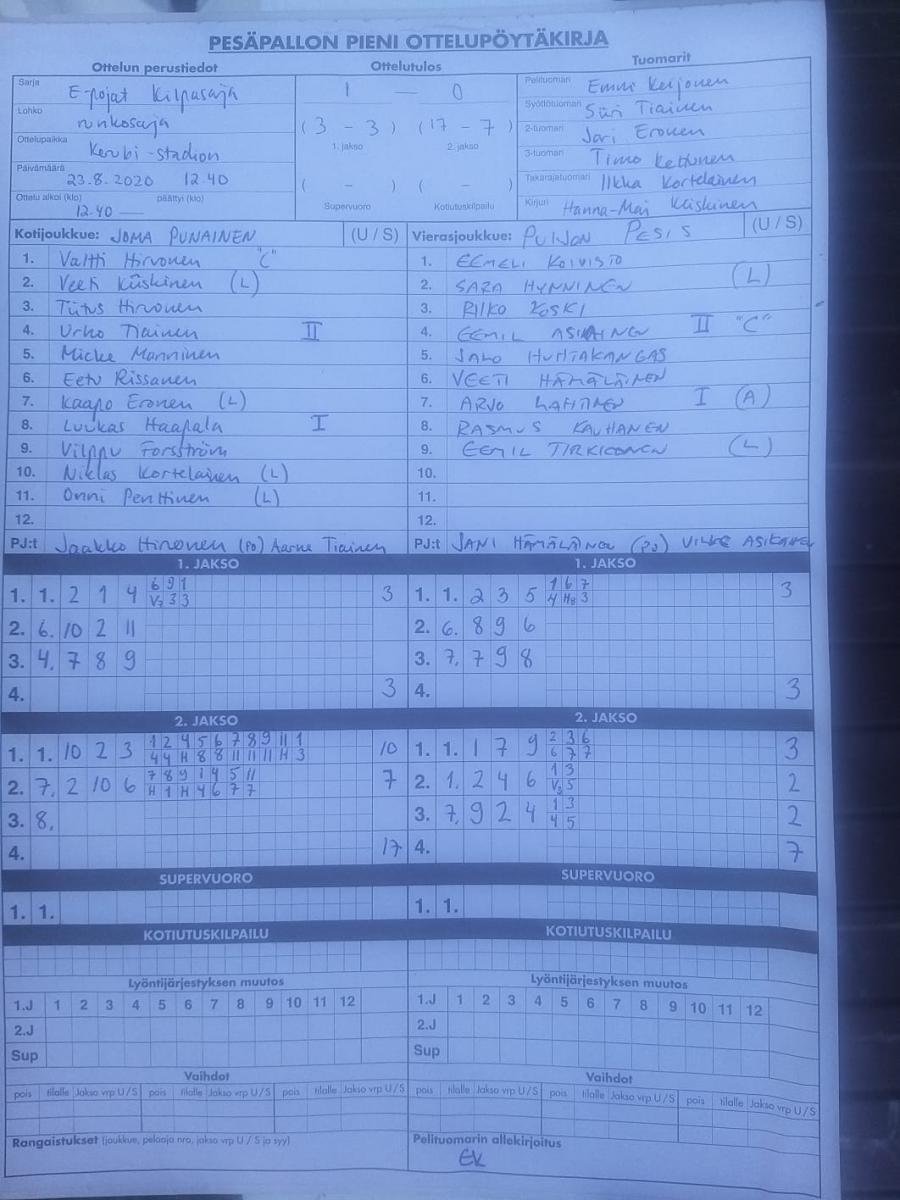 PESÄPALLON PIENI OTTELUPÖYTÄKIRJA
Ottelun perustiedot Ottelutulos Tuomarit
Sarja E-pojat Kilpasarja
Lohko runkosarja
Ottelupaikka Kerubi-stadion
Päivämäärä 23.8.2020 12.40
Ottelu alkoi (klo) päättyi (klo)
12.40 —
1 — 0
(3 - 3) (17 - 7)
1. jakso 2. jakso
( - ) ( - )
Supervuoro Kotiutuskilpailu
Pelituomari Emmi Keijonen
Syöttötuomari Siiri Tiainen
2-tuomari Jari Eronen
3-tuomari Timo Kettunen
Takarajatuomari Ilkka Kortelainen
Kirjuri Hanna-Mari Kiiskinen
Kotijoukkue: JOMA PUNAINEN (U / S)
1. Valtti Hirvonen "C"
2. Veeti Kiiskinen (L)
3. Tiitus Hirvonen
4. Urho Tiainen II
5. Micke Manninen
6. Eetu Rissanen
7. Kaapo Eronen (L)
8. Luukas Haapala I
9. Vilppu Forsström
10. Niklas Kortelainen (L)
11. Onni Penttinen (L)
12.
PJ:t Jaakko Hirvonen (PJ) Aarne Tiainen
Vierasjoukkue: PUIJON PESIS (U / S)
1. EEMELI KOIVISTO
2. SARA HYNNINEN (L)
3. RIKO KOSKI
4. EEMIL ASIKAINEN II "C"
5. JAHO HUHTAKANGAS
6. VEETI HÄMÄLÄINEN
7. ARVO LAHTINEN I (A)
8. RASMUS KAUHANEN
9. EEMIL TIRKKONEN (L)
10.
11.
12.
PJ:t JANI HÄMÄLÄINEN (PJ) VILLE ASIKAINEN
1. JAKSO
6 9 1
1. 1. 2 1 4 V2 3 3 3
2. 6. 10 2 11
3. 4. 7 8 9
4. 3
1. JAKSO
1 6 7
1. 1. 2 3 5 4 H8 3 3
2. 6. 8 9 6
3. 7. 7 9 8
4. 3
2. JAKSO
1 2 4 5 6 7 8 9 11 1
1. 1. 10 2 3 4 4 H 8 8 11 11 11 H 3 10
7 8 9 1 4 5 11
2. 7. 2 10 6 H 1 H 4 6 7 7 7
3. 8.
4. 17
2. JAKSO
2 3 6
1. 1. 1 7 9 6 7 7 3
1 3
2. 1. 2 4 6 V3 5 2
1 3
3. 7. 9 2 4 4 5 2
4. 7
SUPERVUORO
1. 1.
SUPERVUORO
1. 1.
KOTIUTUSKILPAILU
KOTIUTUSKILPAILU
Lyöntijärjestyksen muutos
1.J 1 2 3 4 5 6 7 8 9 10 11 12
2.J
Sup
Lyöntijärjestyksen muutos
1.J 1 2 3 4 5 6 7 8 9 10 11 12
2.J
Sup
Vaihdot
pois tilalle Jakso vrp U/S pois tilalle Jakso vrp U/S pois tilalle Jakso vrp U/S
Vaihdot
pois tilalle Jakso vrp U/S pois tilalle Jakso vrp U/S pois tilalle Jakso vrp U/S
Rangaistukset (joukkue, pelaaja nro, jakso vrp U / S ja syy)
Pelituomarin allekirjoitus
EK